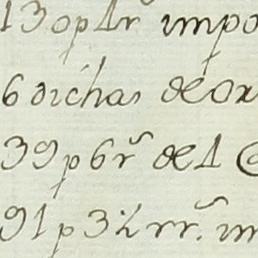 130p 1 r^s impo
6 dichas de Or
39p 6 r^s de 1 @
91p 3½ rr^s. im